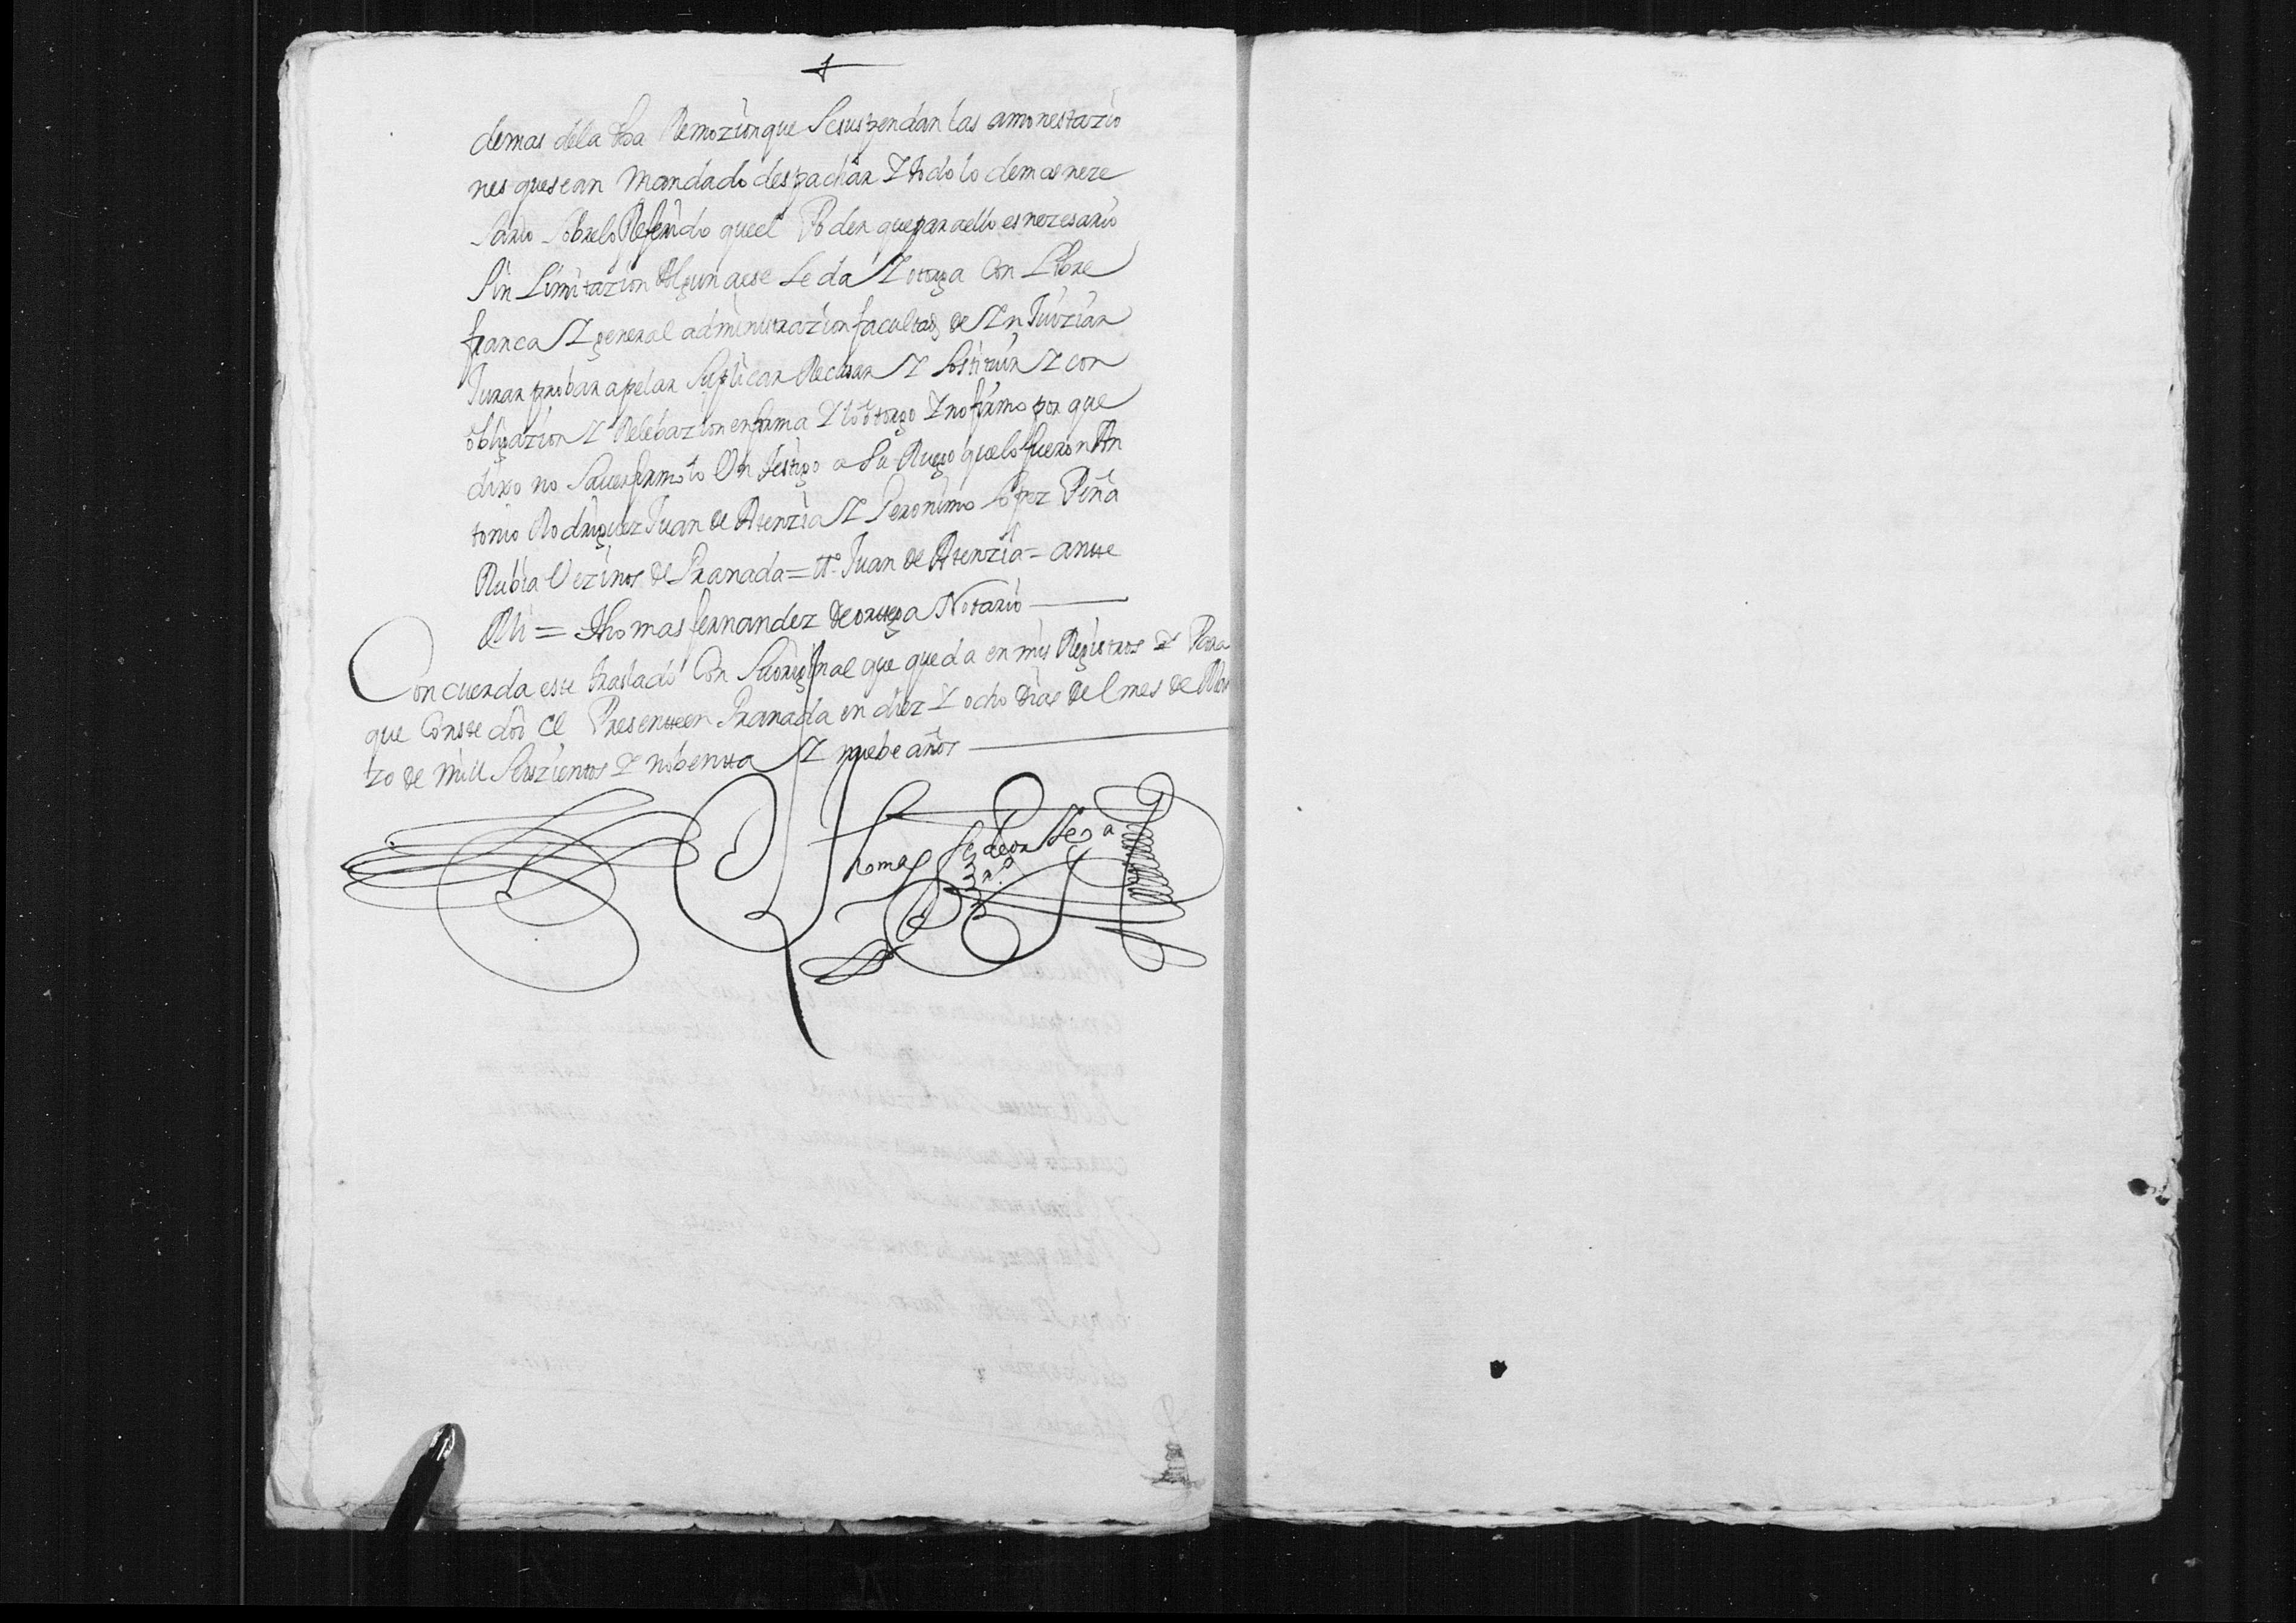 demas dela dha Remozion que Sesuspendan las amonestazio
nes quesean mandado despachar Y todo lo demas neze
sario sobrelo Referido queel Poder queparaello es nezesario
sin Limitazion Alguna ese Le da Y otorga Con Libre
franca Y general administrazion facultad de Enjuizian
Jurar probar apelar Suplicar Recusar Y sostituir Y con
obligazion Y Relebazion enforma Y lo otorgo Y no firmo por que
dixo no Saver firmolo Un testigo a Su Ruego quelo fueron An
tonio Rodriguez Juan de Atenzia Y Geronimo Lopez Peña
Rubia Vezinos de Granada = tt.º Juan de Atenzia = ante
Mi = Thomas fernandez de ortega Notario
Concuerda este traslado Con Su original que queda en mis Registros Y Para
que Conste doi el Presente en Granada en diez Y ocho dias del mes de Mar
zo de mill Seiszientos Y nobenta Y nuebe años
Thomas fr de ortega